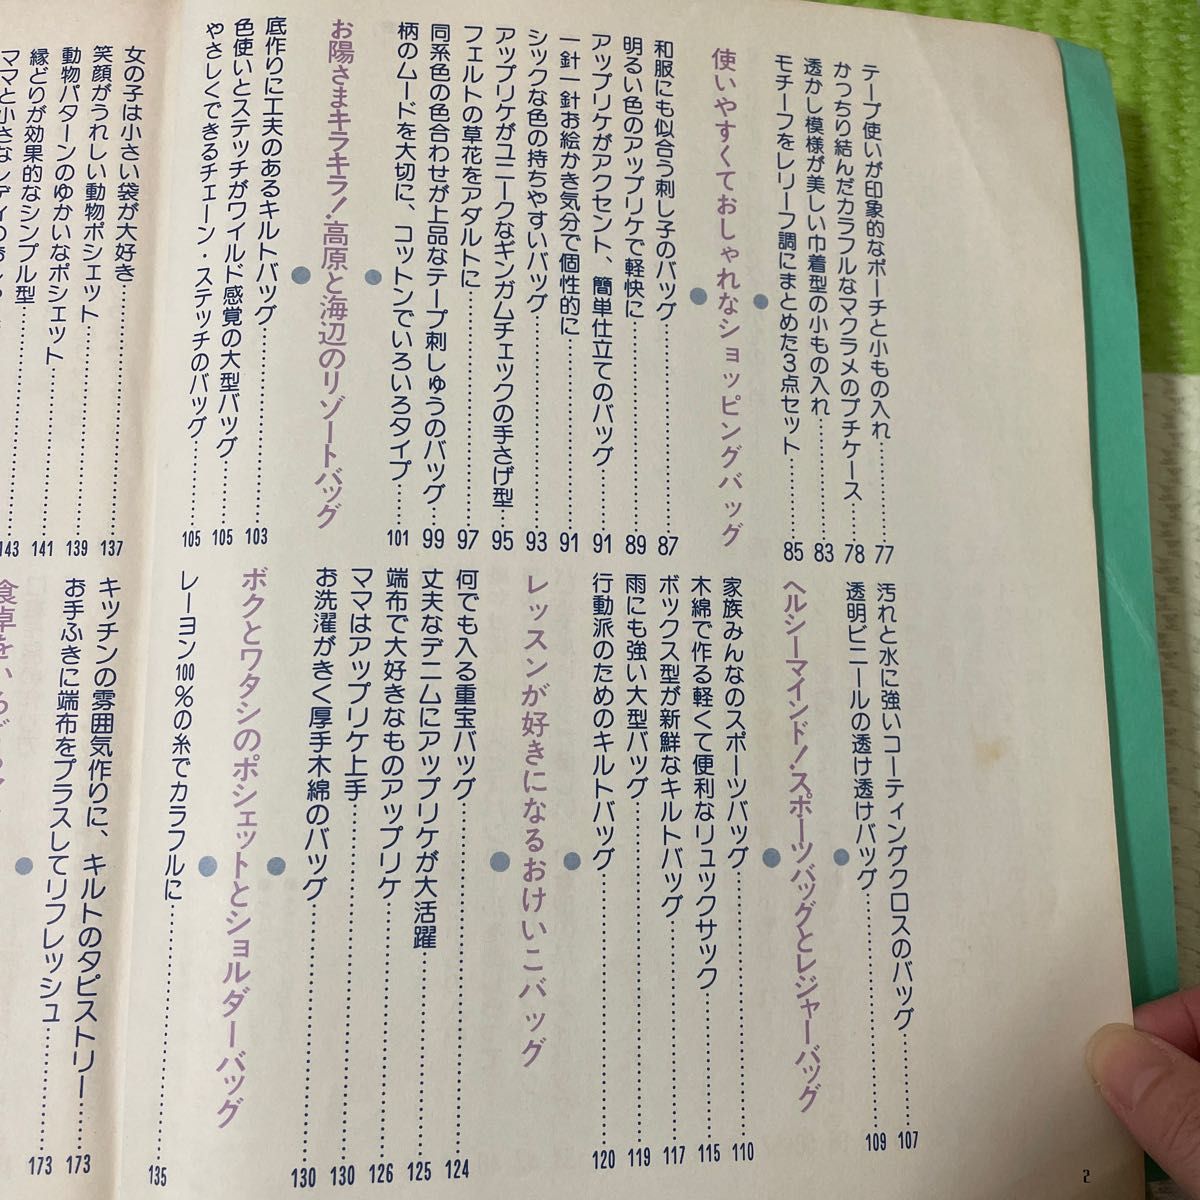 テープ使いが印象的なポーチと小もの入れ……77
かっちり結んだカラフルなマクラメのプチケース……78
透かし模様が美しい巾着型の小もの入れ……83
モチーフをレリーフ調にまとめた3点セット……85
使いやすくておしゃれなショッピングバッグ
和服にも似合う刺し子のバッグ……87
明るい色のアップリケで軽快に……89
アップリケがアクセント、簡単仕立てのバッグ……91
一針一針お絵かき気分で個性的に……91
シックな色の持ちやすいバッグ……93
アップリケがユニークなギンガムチェックの手さげ型……95
フェルトの草花をアダルトに……97
同系色の色合わせが上品なテープ刺しゅうのバッグ……99
柄のムードを大切に、コットンでいろいろタイプ……101
お陽さまキラキラ!高原と海辺のリゾートバッグ
底作りに工夫のあるキルトバッグ……103
色使いとステッチがワイルド感覚の大型バッグ……105
やさしくできるチェーン・ステッチのバッグ……105
汚れと水に強いコーティングクロスのバッグ……107
透明ビニールの透け透けバッグ……109
ヘルシーマインド!スポーツバッグとレジャーバッグ
家族みんなのスポーツバッグ……110
木綿で作る軽くて便利なリュックサック……115
ボックス型が新鮮なキルトバッグ……117
雨にも強い大型バッグ……119
行動派のためのキルトバッグ……120
レッスンが好きになるおけいこバッグ
何でも入る重宝バッグ……124
丈夫なデニムにアップリケが大活躍……125
端布で大好きなものアップリケ……126
ママはアップリケ上手……130
お洗濯がきく厚手木綿のバッグ……130
ボクとワタシのポシェットとショルダーバッグ
レーヨン100%の糸でカラフルに……135
女の子は小さい袋が大好き……137
笑顔がうれしい動物ポシェット……139
動物パターンのゆかいなポシェット……141
縁どりが効果的なシンプル型……143
ママと小さなレディの
キッチンの雰囲気作りに、キルトのタピストリー……173
お手ふきに端布をプラスしてリフレッシュ……173
食卓をいろどる
2